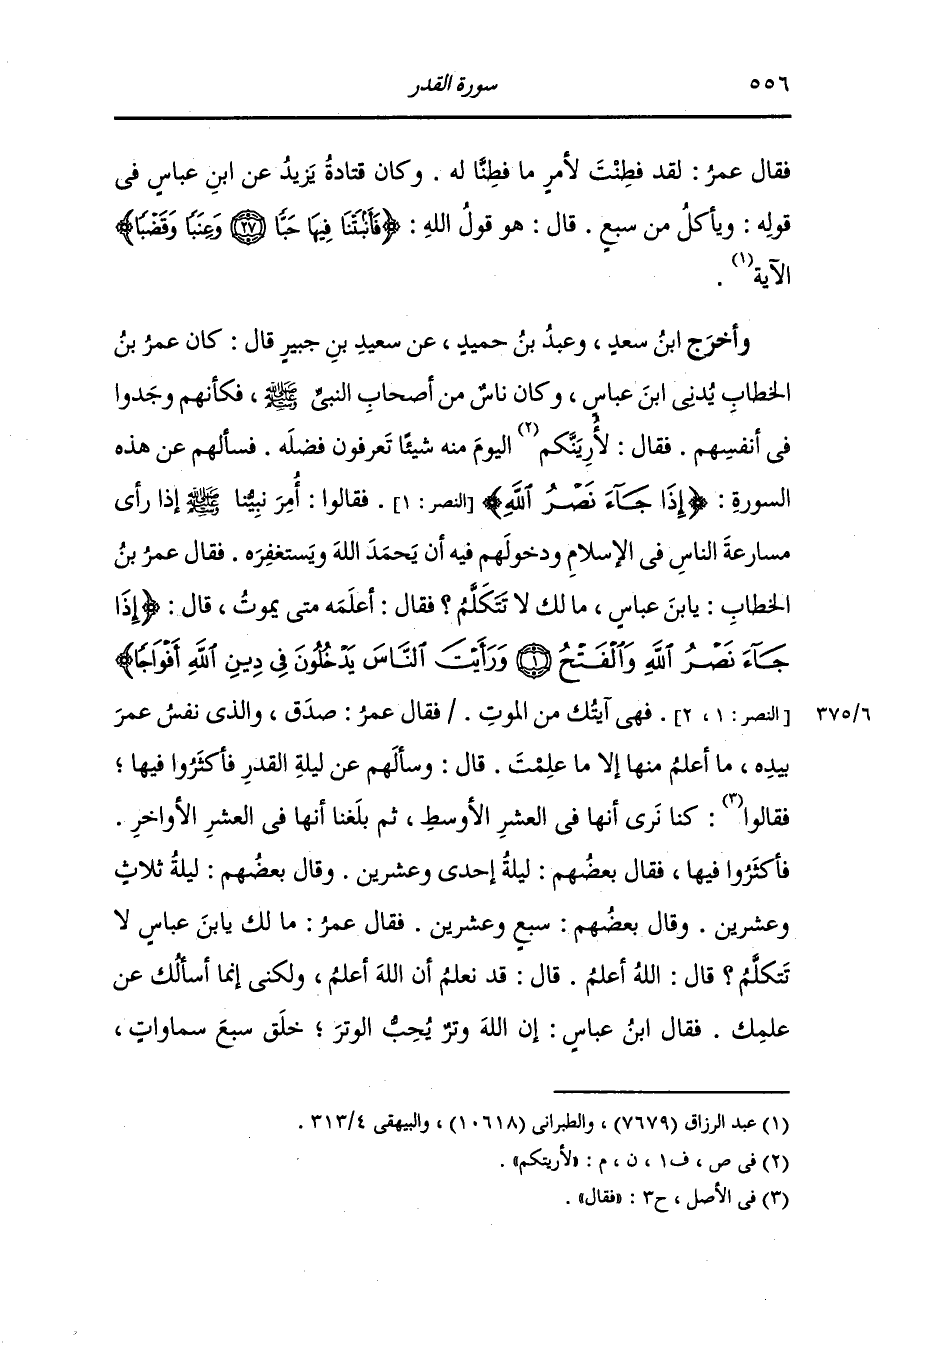 ٥٥٦ سورة القدر
فقال عمرُ : لقد فطِنْتَ لأمرٍ ما فطِنَّا له . وكان قتادةُ يَزيدُ عن ابنِ عباسٍ فى
قولِه : ويأكلُ من سبعٍ . قال : هو قولُ اللهِ : ﴿فَأَنۢبَتۡنَا فِيهَا حَبّٗا ٢٧ وَعِنَبٗا وَقَضۡبٗا﴾
الآية(١) .
وأخرَج ابنُ سعدٍ ، وعبدُ بنُ حميدٍ ، عن سعيدِ بنِ جبيرٍ قال : كان عمرُ بنُ
الخطابِ يُدنِى ابنَ عباسٍ ، وكان ناسٌ من أصحابِ النبىِّ ﷺ ، فكأنهم وجَدوا
فى أنفسِهم . فقال : لأُرِيَنَّكم(٢) اليومَ منه شيئًا تَعرفون فضلَه . فسألهم عن هذه
السورةِ : ﴿إِذَا جَآءَ نَصۡرُ ٱللَّهِ﴾ [النصر : ١] . فقالوا : أُمِرَ نبيُّنا ﷺ إذا رأى
مسارعةَ الناسِ فى الإسلامِ ودخولَهم فيه أن يَحمَدَ اللهَ ويَستغفِرَه . فقال عمرُ بنُ
الخطابِ : يابنَ عباسٍ ، ما لك لا تَتَكلَّمُ ؟ فقال : أعلَمَه متى يموتُ ، قال : ﴿إِذَا
جَآءَ نَصۡرُ ٱللَّهِ وَٱلۡفَتۡحُ ١ وَرَأَيۡتَ ٱلنَّاسَ يَدۡخُلُونَ فِى دِينِ ٱللَّهِ أَفۡوَاجٗا﴾
٣٧٥/٦ [النصر : ١ ، ٢] . فهى آيتُك من الموتِ . / فقال عمرُ : صدَق ، والذى نفسُ عمرَ
بيدِه ، ما أعلمُ منها إلا ما علِمْتَ . قال : وسألَهم عن ليلةِ القدرِ فأكثَرُوا فيها ؛
فقالوا(٣) : كنا نَرى أنها فى العشرِ الأوسطِ ، ثم بلَغنا أنها فى العشرِ الأواخرِ .
فأكثَرُوا فيها ، فقال بعضُهم : ليلةُ إحدى وعشرين . وقال بعضُهم : ليلةُ ثلاثٍ
وعشرين . وقال بعضُهم : سبعٍ وعشرين . فقال عمرُ : ما لك يابنَ عباسٍ لا
تَتكلَّمُ ؟ قال : اللهُ أعلمُ . قال : قد نعلمُ أن اللهَ أعلمُ ، ولكنى إنما أسألُك عن
علمِك . فقال ابنُ عباسٍ : إن اللهَ وترٌ يُحِبُّ الوترَ ؛ خلَق سبعَ سماواتٍ ،
(١) عبد الرزاق (٧٦٧٩) ، والطبرانى (١٠٦١٨) ، والبيهقى ٣١٣/٤ .
(٢) فى ص ، ف١ ، ن ، م : «لأريتكم» .
(٣) فى الأصل ، ح٣ : «فقال» .